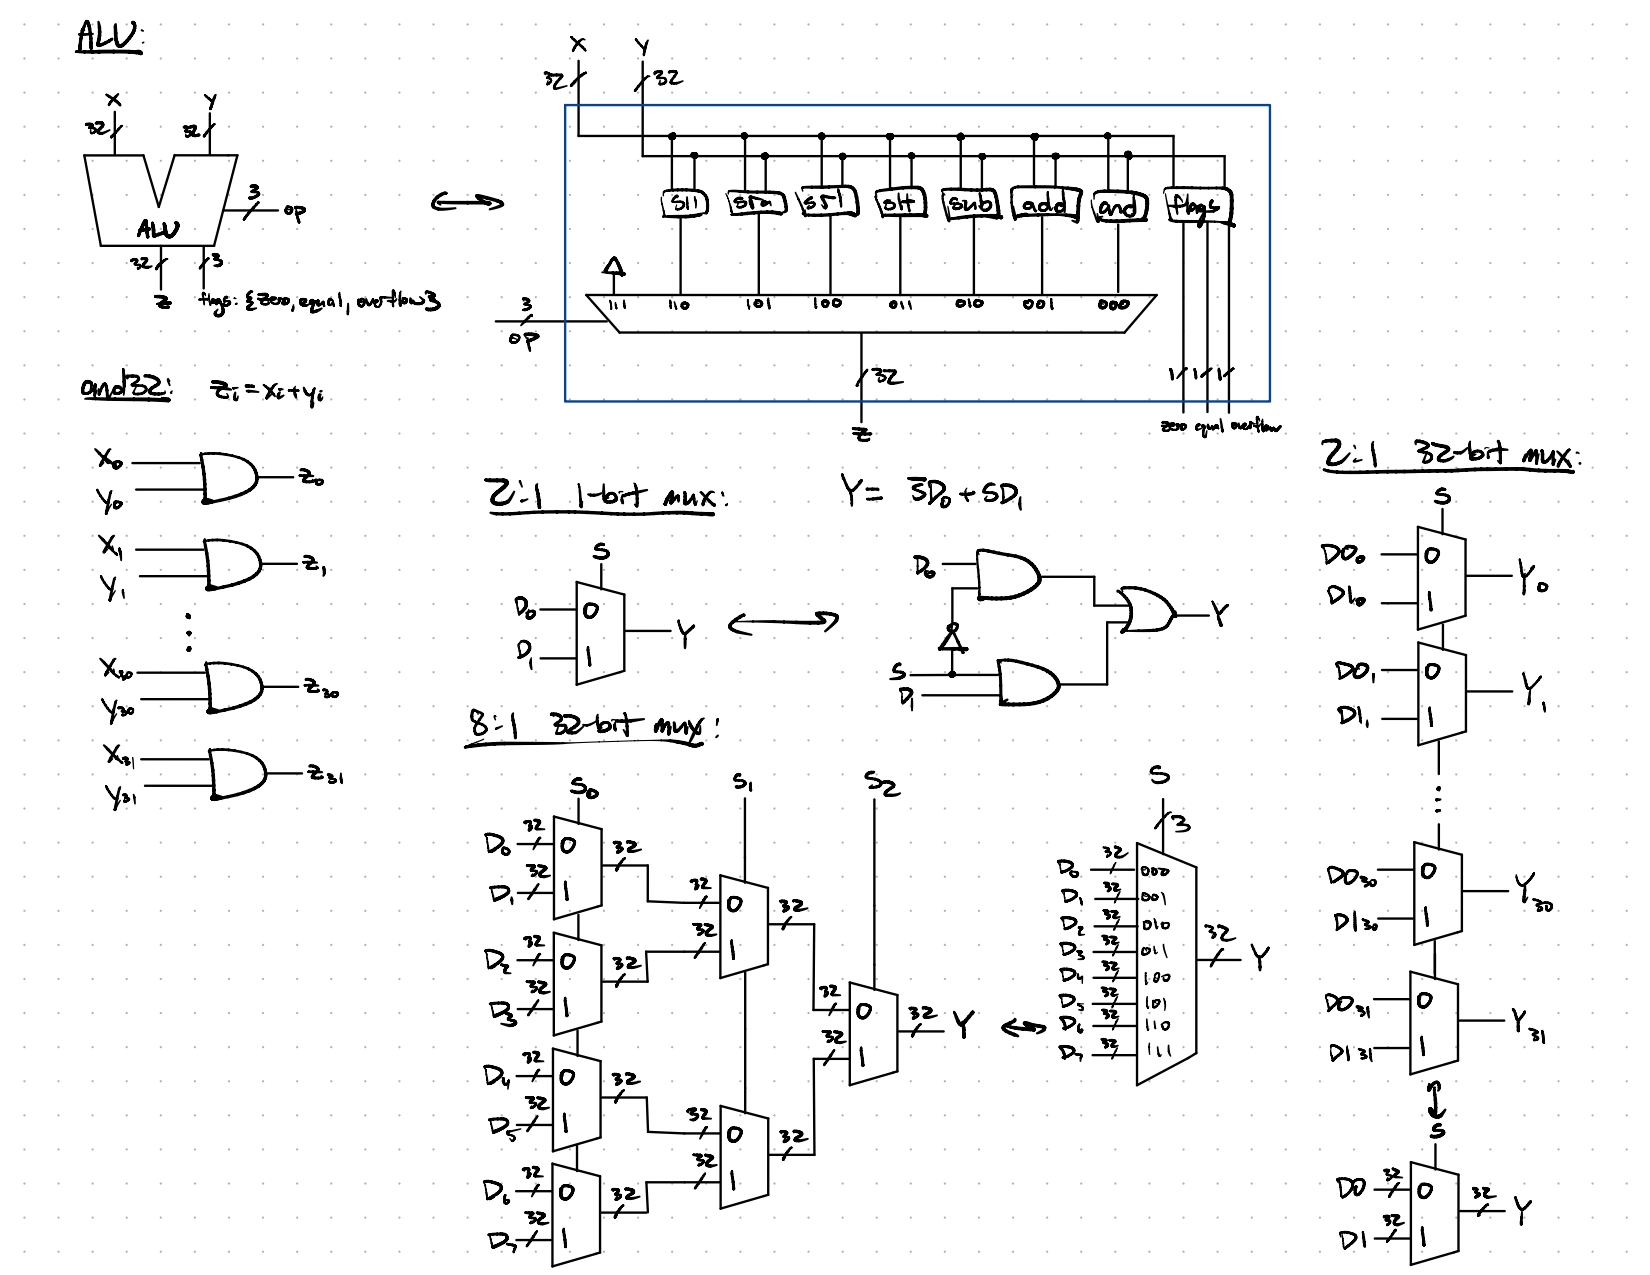 ALU:
X Y
32 32
3
op
ALU
32 3
Z flags: {zero, equal, overflow}
X Y
32 32
sll sra srl slt sub add and flags
111 110 101 100 011 010 001 000
3
op
32
1 1 1
Z
zero equal overflow
and32: Zi = Xi + yi
X0
Y0
Z0
X1
Y1
Z1
X30
Y30
Z30
X31
Y31
Z31
2:1 1-bit mux: Y = S̅D0 + SD1
S
D0 0
D1 1
Y
D0
S
D1
Y
8:1 32-bit mux:
S0 S1 S2
D0 32 0 32
D1 32 1
D2 32 0 32
D3 32 1
D4 32 0 32
D5 32 1
D6 32 0 32
D7 32 1
32 0 32
32 1
32 0 32
32 1
32 0 32 Y
32 1
S
3
D0 32 000
D1 32 001
D2 32 010
D3 32 011
D4 32 100
D5 32 101
D6 32 110
D7 32 111
32 Y
2:1 32-bit mux:
S
D00 0
D10 1
Y0
D01 0
D11 1
Y1
D030 0
D130 1
Y30
D031 0
D131 1
Y31
S
D0 32 0
D1 32 1
32 Y